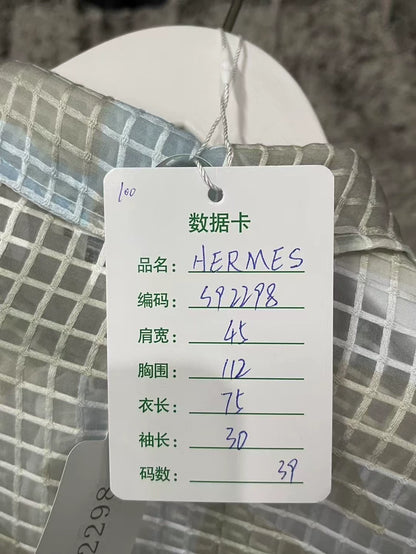 100
数据卡
品名: HERMES
编码: 592298
肩宽: 45
胸围: 112
衣长: 75
袖长: 30
码数: 39
2298